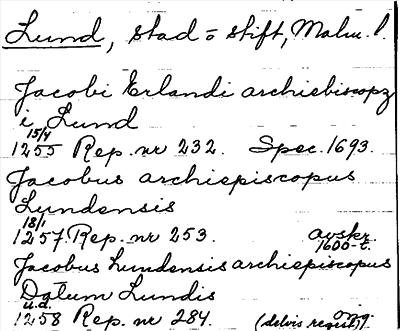 Lund, stad o stift, Malm. l.
Jacobi Erlandi archiebiscopz
i Lund
15/4
1255 Rep. nr 232. Spec. 1693.
Jacobus archiepiscopus
Lundensis
18/1
1257. Rep. nr 253. avskr. 1600-t.
Jacobus Lundensis archiepiscopus
Datum Lundis
u.d.
1258 Rep. nr 284. (delvis regist)